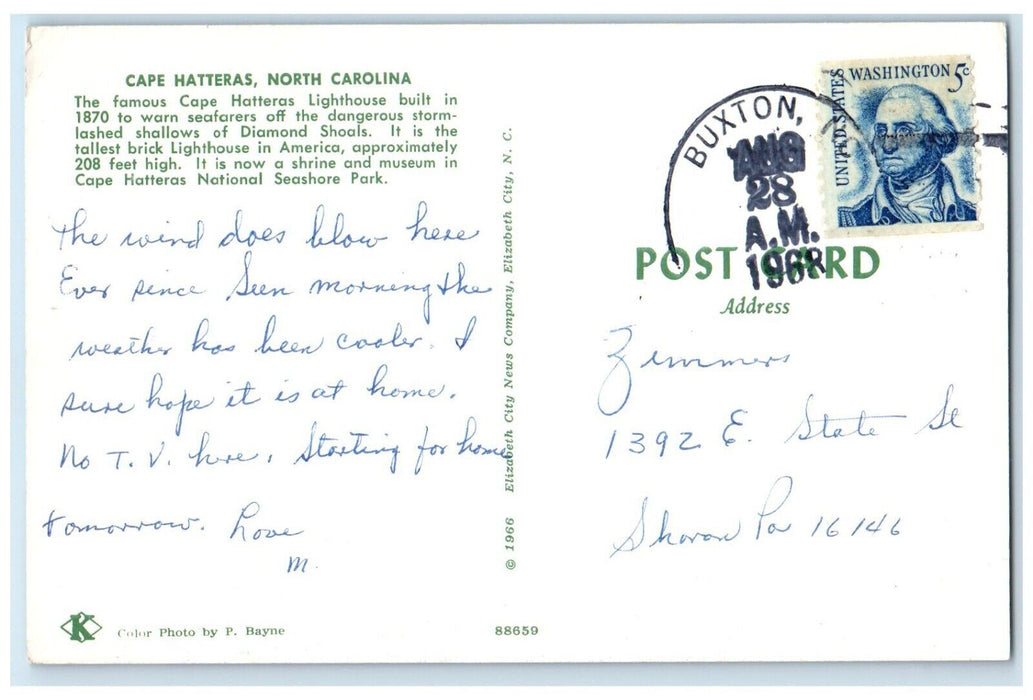 CAPE HATTERAS, NORTH CAROLINA
The famous Cape Hatteras Lighthouse built in
1870 to warn seafarers off the dangerous storm-
lashed shallows of Diamond Shoals. It is the
tallest brick Lighthouse in America, approximately
208 feet high. It is now a shrine and museum in
Cape Hatteras National Seashore Park.
The wind does blow here
Ever since Sun morning the
weather has been cooler. I
sure hope it is at home.
No T. V. here. Starting for home
tomorrow. Love
M.
K
Color Photo by P. Bayne
© 1966 Elizabeth City News Company, Elizabeth City, N. C.
88659
BUXTON,
AUG
28
A.M.
1968
UNITED STATES
WASHINGTON 5c
POST CARD
Address
Zimmers
1392 E. State St
Sharon Pa 16146